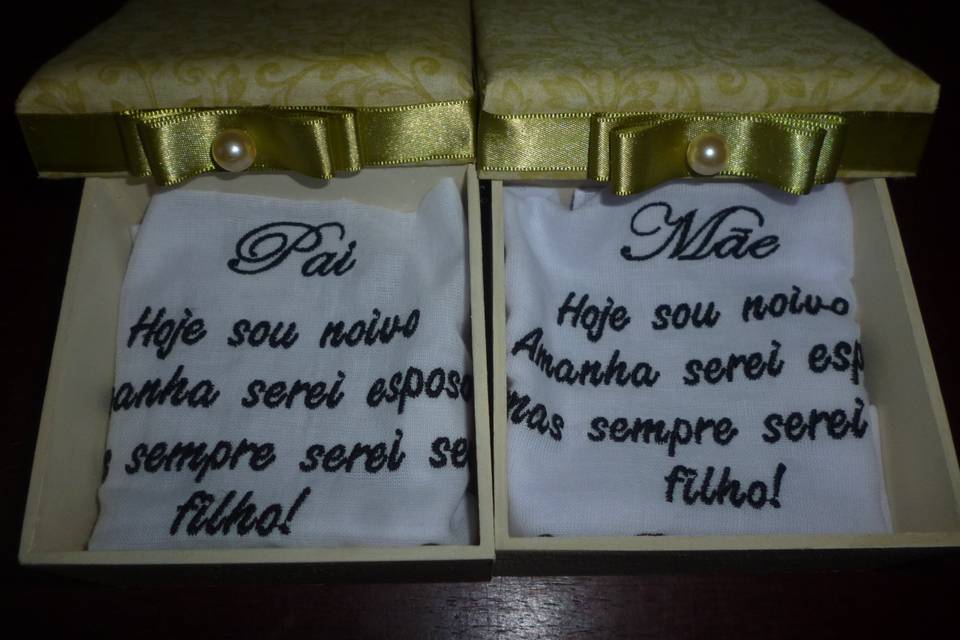 Pai
Hoje sou noivo
anha serei esposo
s sempre serei se
filho!
Mãe
Hoje sou noivo
Amanha serei esp
mas sempre serei
filho!